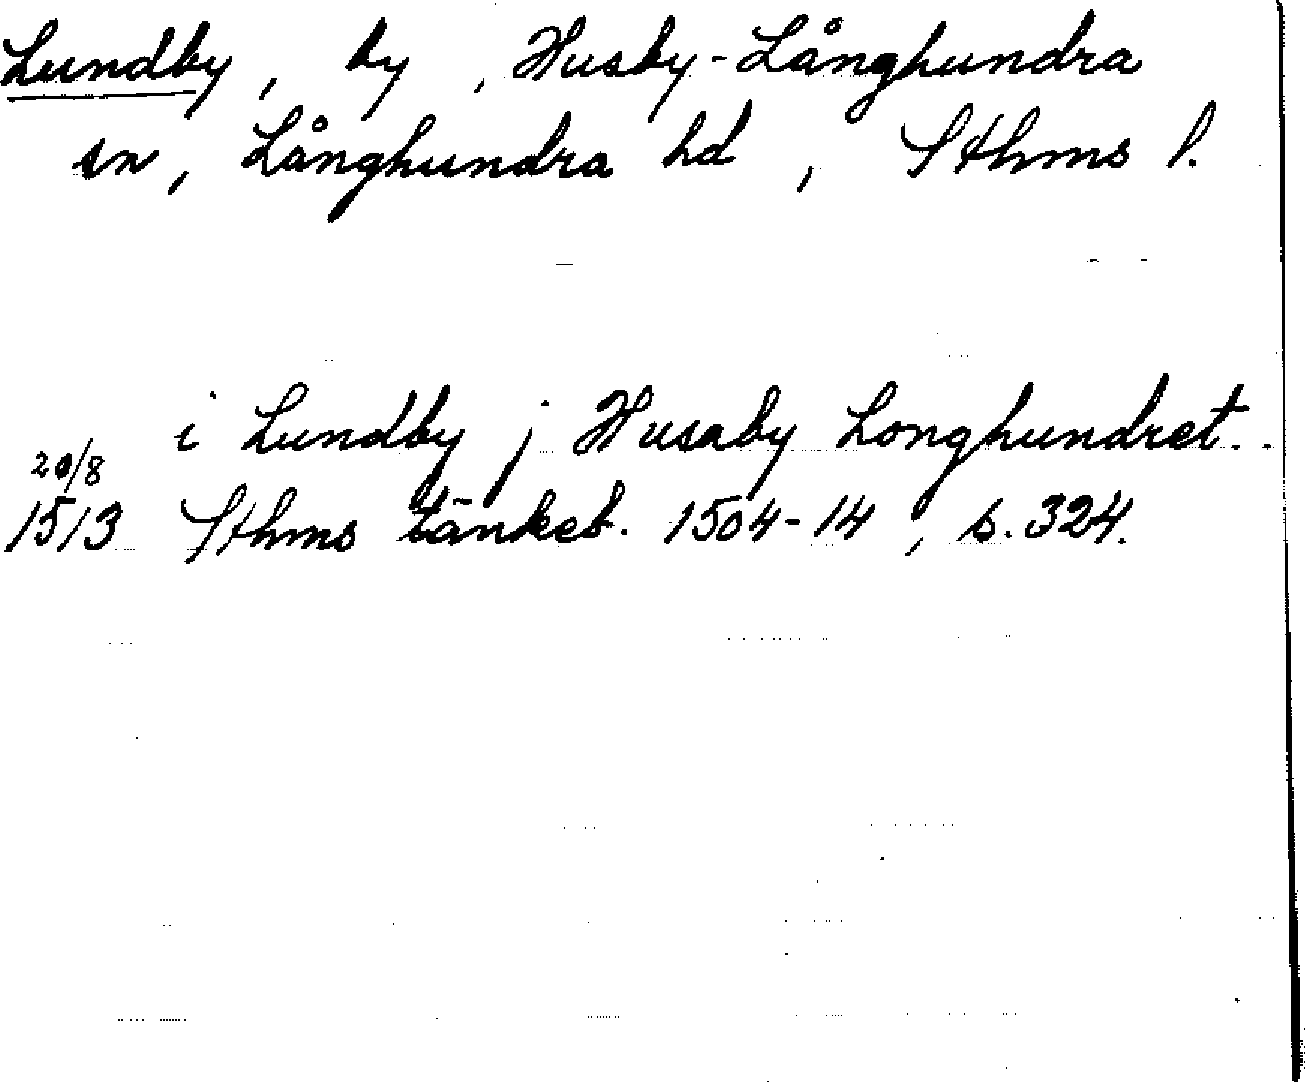 Lundby, by, Husby-Långhundra
sn, Långhundra hd, Sthms l.
i Lundby j Husaby Longhundret.
20/8
1513 Sthms tänkeb. 1504-14, s. 324.